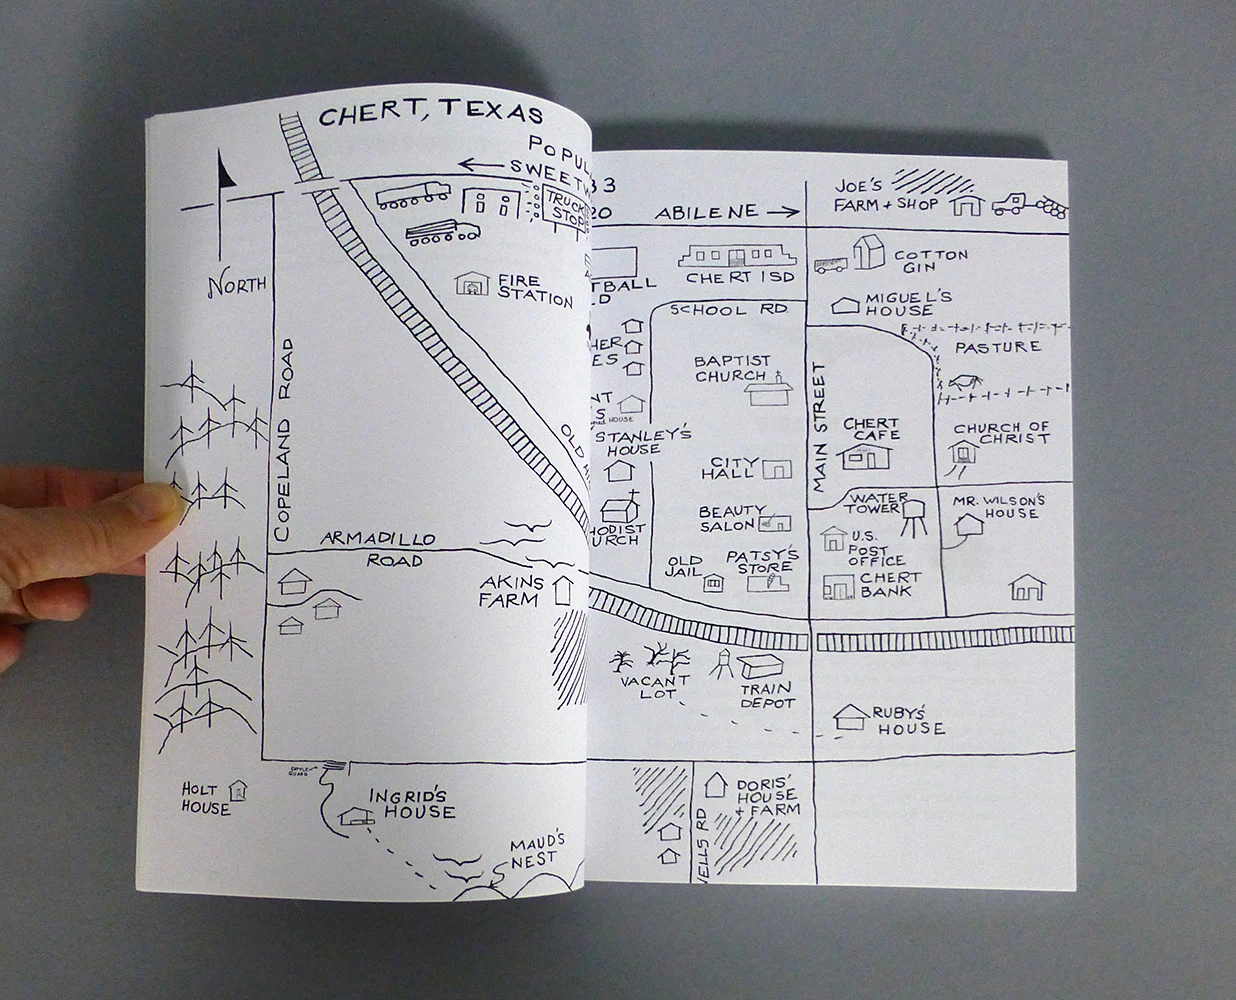 CHERT, TEXAS
POPUL
33
SWEETW
20
ABILENE
JOE'S
FARM + SHOP
NORTH
TRUCK
STOP
FIRE
STATION
TBALL
LD
CHERT ISD
COTTON
GIN
MIGUEL'S
HOUSE
SCHOOL RD
PASTURE
COPELAND ROAD
OLD
HER
ES
BAPTIST
CHURCH
MAIN STREET
NT
'S
HOUSE
STANLEY'S
HOUSE
CHERT
CAFE
CHURCH OF
CHRIST
CITY
HALL
WATER
TOWER
MR. WILSON'S
HOUSE
HODIST
URCH
BEAUTY
SALON
U.S.
POST
OFFICE
ARMADILLO
ROAD
OLD
JAIL
PATSY'S
STORE
CHERT
BANK
AKINS
FARM
VACANT
LOT
TRAIN
DEPOT
RUBY'S
HOUSE
CATTLE
GUARD
HOLT
HOUSE
INGRID'S
HOUSE
MAUD'S
NEST
ELLS RD
DORIS'
HOUSE
+ FARM